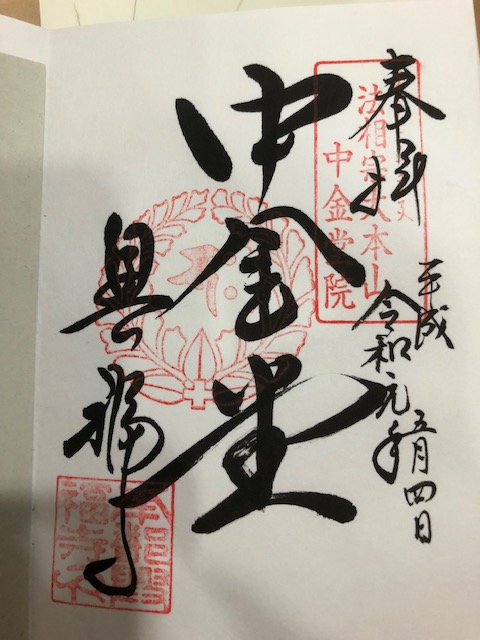 奉拝
平成
令和元年
五月四日
法相宗大本山
中金堂院
中金堂
興福寺